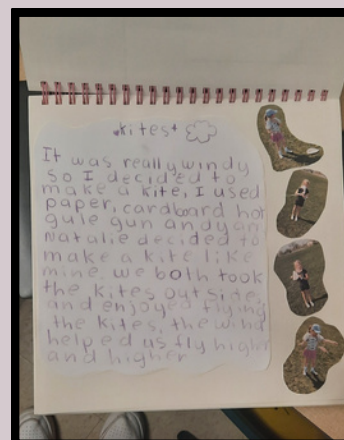 kites
It was really windy
so I decided to
make a kite, I used
paper, cardboard hot
gule gun and yarn
Natalie decided to
make a kite like
mine. we both took
the kites outside,
and enjoyed flying
the kites, the wind
helped us fly higher
and higher